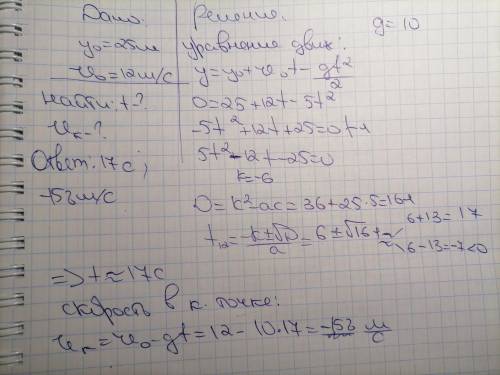 Дано:
y₀=25м
v₀=12м/с
Найти: t-?
vк-?
Ответ: 17с;
-158м/с
Решение.
g=10
уравнение движ:
y=y₀+v₀t-gt²/2
0=25+12t-5t²
-5t²+12t+25=0 |·(-1)
5t²-12t-25=0
k=-6
D=k²-ac=36+25·5=161
t₁,₂=(-k±√D)/a=6±√161≈
6+13=17
6-13=-7<0
=>t≈17с
скорость в к. точке:
vк=v₀-gt=12-10·17=-158 м/с